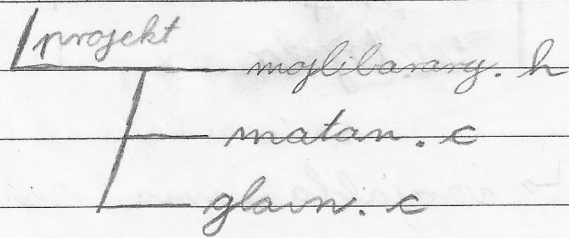 projekt
mojlibarary.h
matan.c
glavn.c